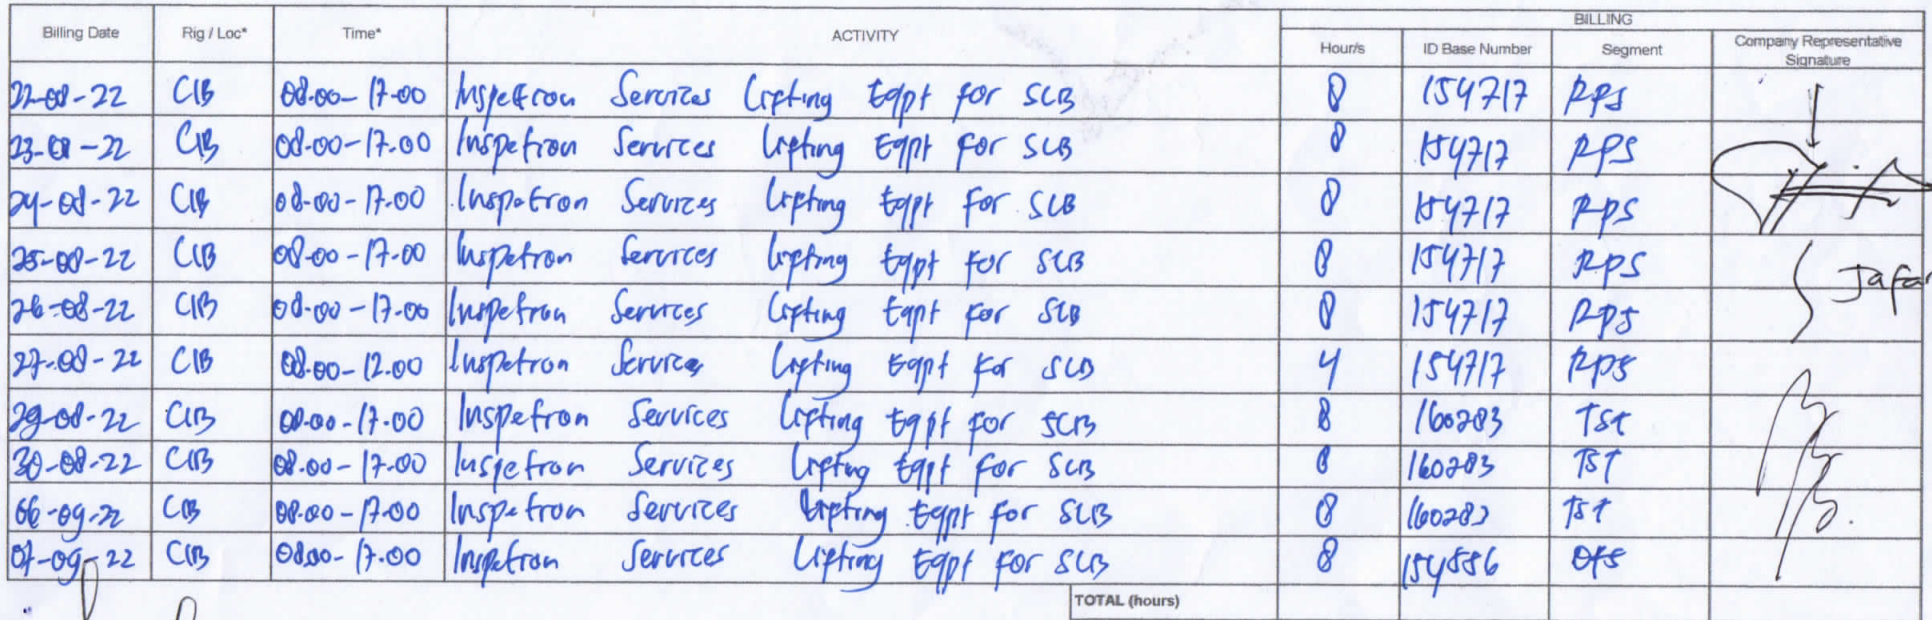 BILLING
Billing Date Rig / Loc* Time* ACTIVITY Hour/s ID Base Number Segment Company Representative Signature
22-08-22 CIB 08.00-17.00 Inspetron Services Lifting Eqpt for SLB 8 154717 RPS
23-08-22 CIB 08.00-17.00 Inspetron Services Lifting Eqpt for SLB 8 154717 RPS
24-08-22 CIB 08.00-17.00 Inspetron Services Lifting Eqpt for SLB 8 154717 RPS
25-08-22 CIB 08.00-17.00 Inspetron Services Lifting Eqpt for SLB 8 154717 RPS Jafar
26-08-22 CIB 08.00-17.00 Inspetron Services Lifting Eqpt for SLB 8 154717 RPS
27-08-22 CIB 08.00-12.00 Inspetron Services Lifting Eqpt for SLB 4 154717 RPS
29-08-22 CIB 08.00-17.00 Inspetron Services Lifting Eqpt for SLB 8 160283 TST
30-08-22 CIB 08.00-17.00 Inspetron Services Lifting Eqpt for SLB 8 160283 TST
06-09-22 CIB 08.00-17.00 Inspetron Services Lifting Eqpt for SLB 8 160283 TST
07-09-22 CIB 08.00-17.00 Inspetron Services Lifting Eqpt for SLB 8 154886 OFS
TOTAL (hours)